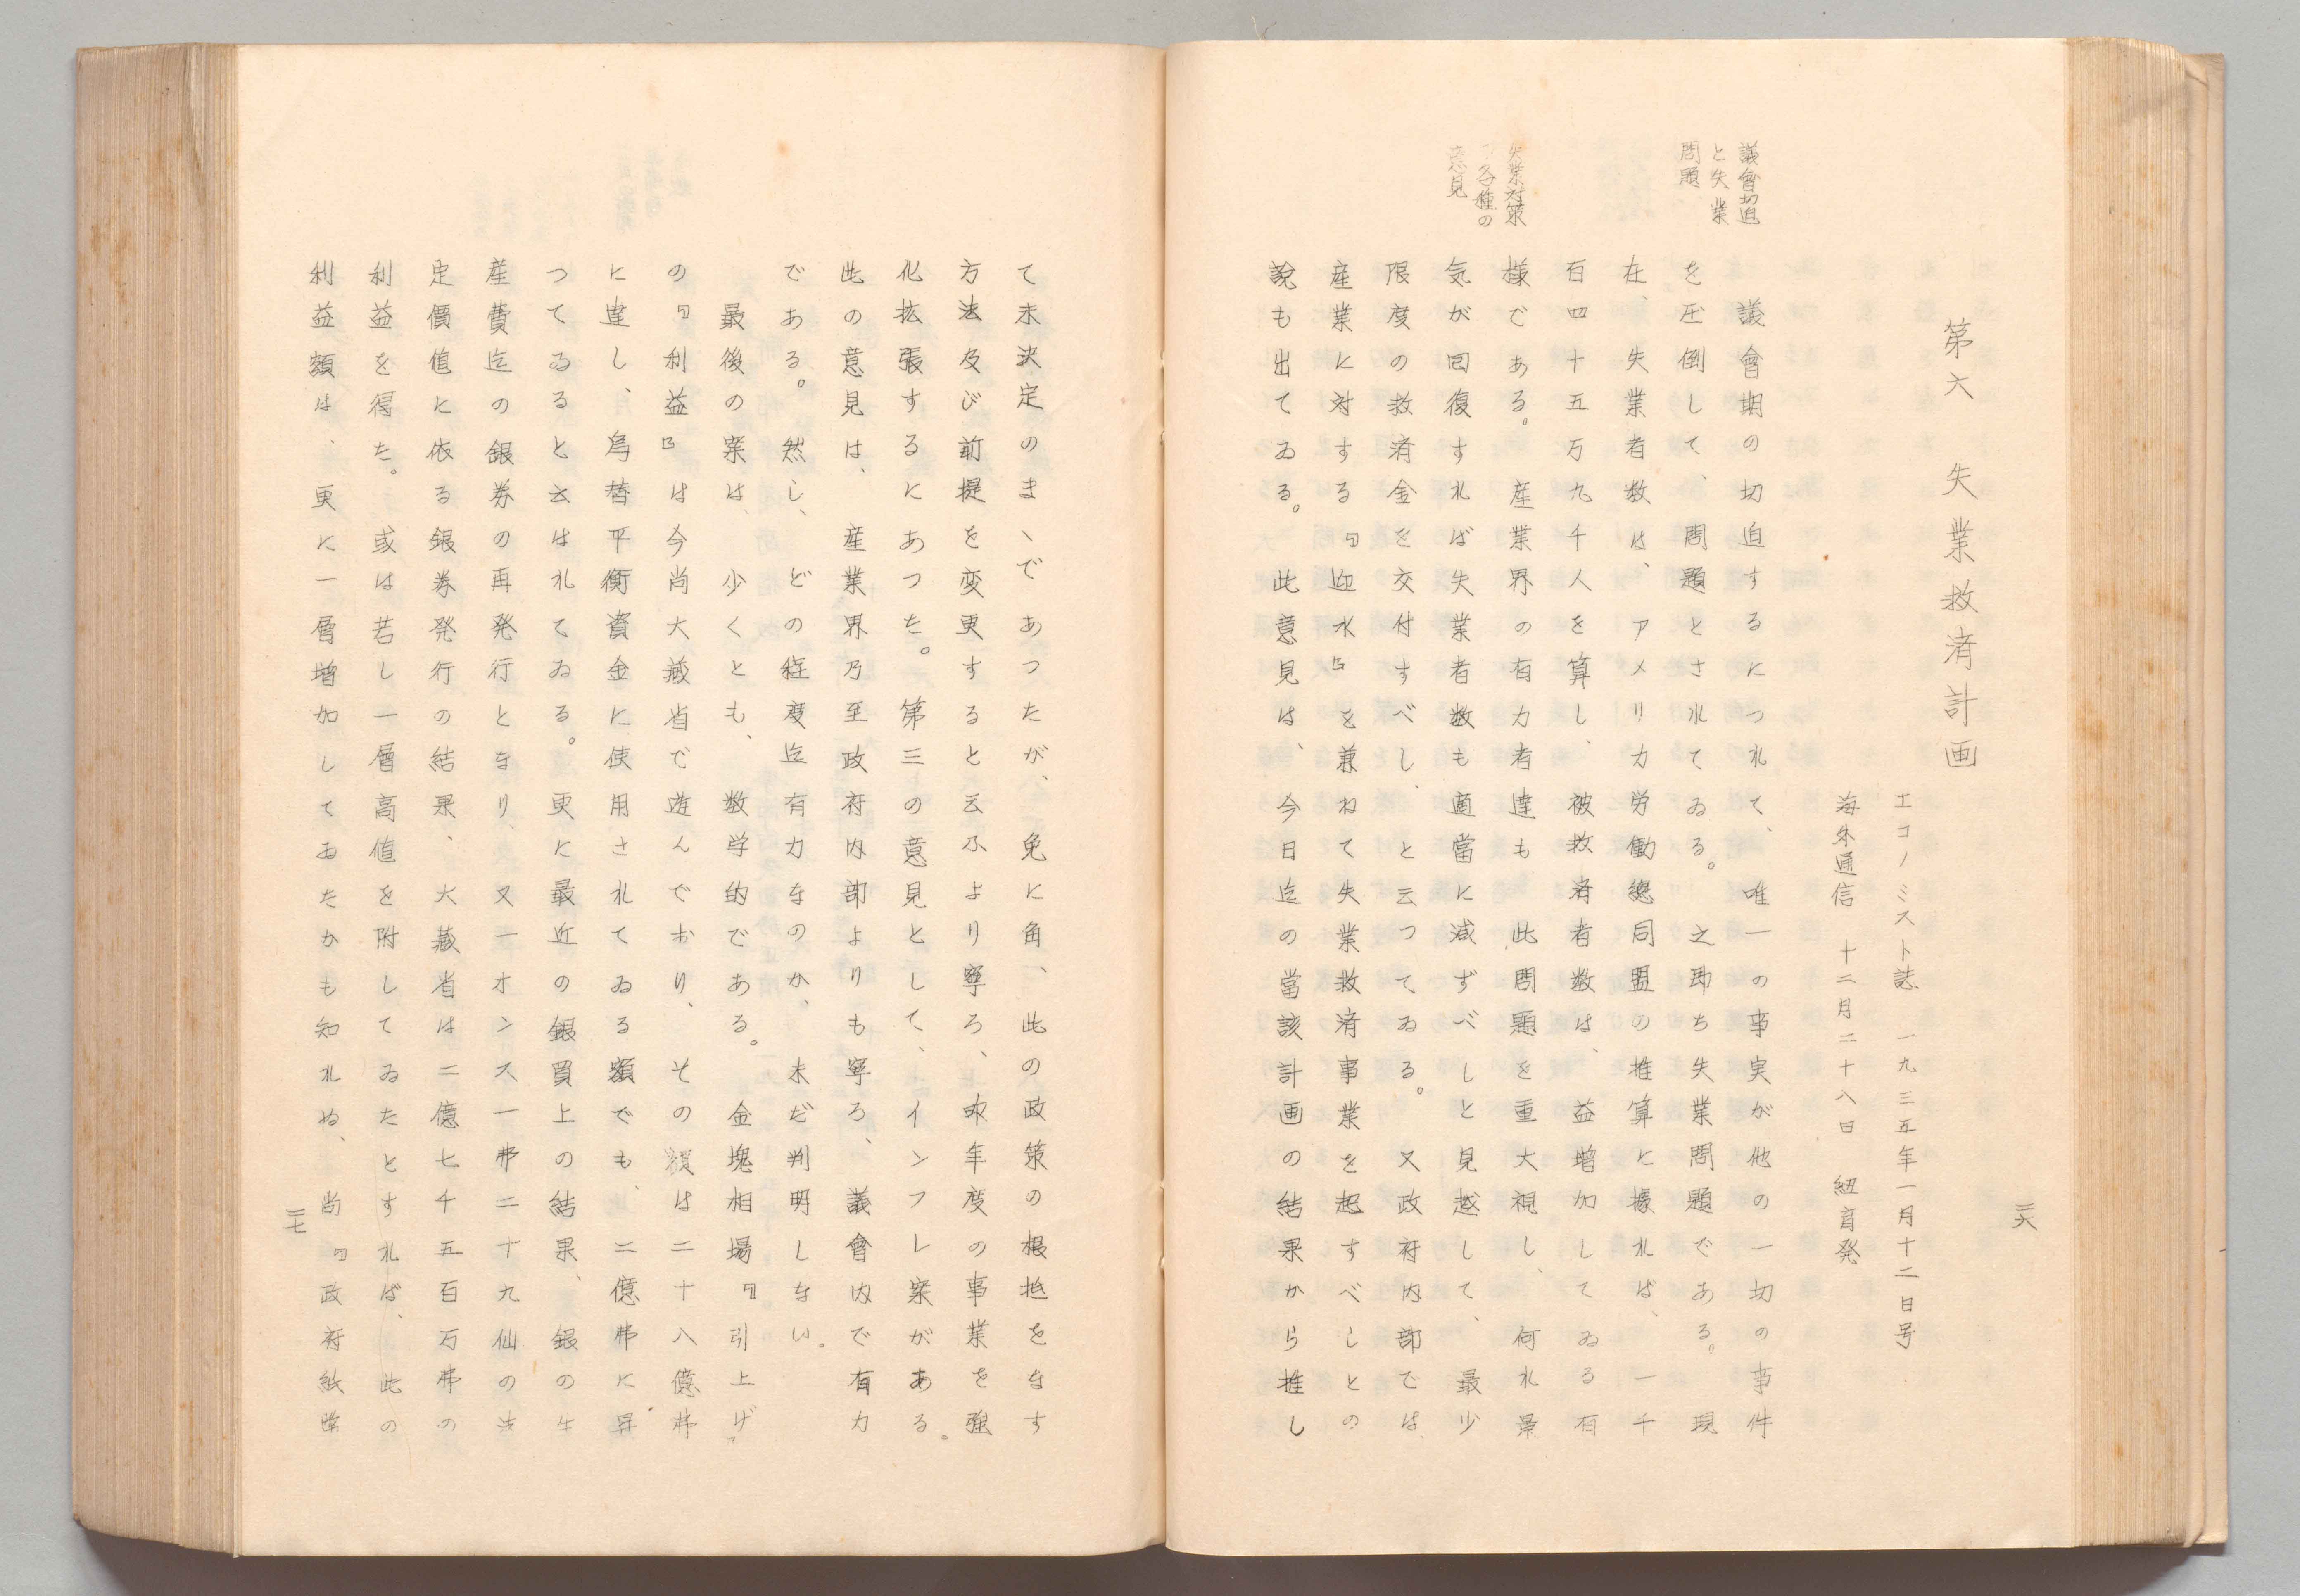 三六
第六 失業救済計画
エコノミスト誌 一九三五年一月十二日号
海外通信 十二月二十八日 紐育発
議會切迫
と失業
問題
議會期の切迫するにつれて、唯一の事実が他の一切の事件
を圧倒して、問題とされてゐる。之即ち失業問題である。現
在、失業者数は、アメリカ労働總同盟の推算に據れば、一千
百四十五万九千人を算し、被救済者数は、益増加してゐる有
様である。産業界の有力者達も此問題を重大視し、何れ景
失業対策
の各種の
意見
気が回復すれば失業者数も適當に減ずべしと見越して、最少
限度の救済金を交付すべし、と云つてゐる。又政府内部では
産業に対する『迎水』を兼ねて失業救済事業を起すべしとの
説も出てゐる。此意見は、今日迄の當該計画の結果から推し
て未決定のまゝであつたが、兎に角、此の政策の根拠をなす
方法及び前提を変更すると云ふより寧ろ、昨年度の事業を強
化拡張するにあつた。第三の意見として、インフレ案がある。
此の意見は、産業界乃至政府内部よりも寧ろ、議會内で有力
である。然し、どの程度迄有力なのか、未だ判明しない。
最後の案は、少くとも、数学的である。金塊相場『引上げ』
の『利益』は今尚大藏省で遊んでおり、その額は二十八億弗
に達し、為替平衡資金に使用されてゐる額でも、二億弗に昇
つてゐると云はれてゐる。更に最近の銀買上の結果、銀の生
産費迄の銀券の再発行となり、又一オンス一弗二十九仙の法
定價値に依る銀券発行の結果、大藏省は二億七千五百万弗の
利益を得た。或は若し一層高値を附してゐたとすれば、此の
利益額は、更に一層増加してゐたかも知れぬ、尚『政府紙幣
三七